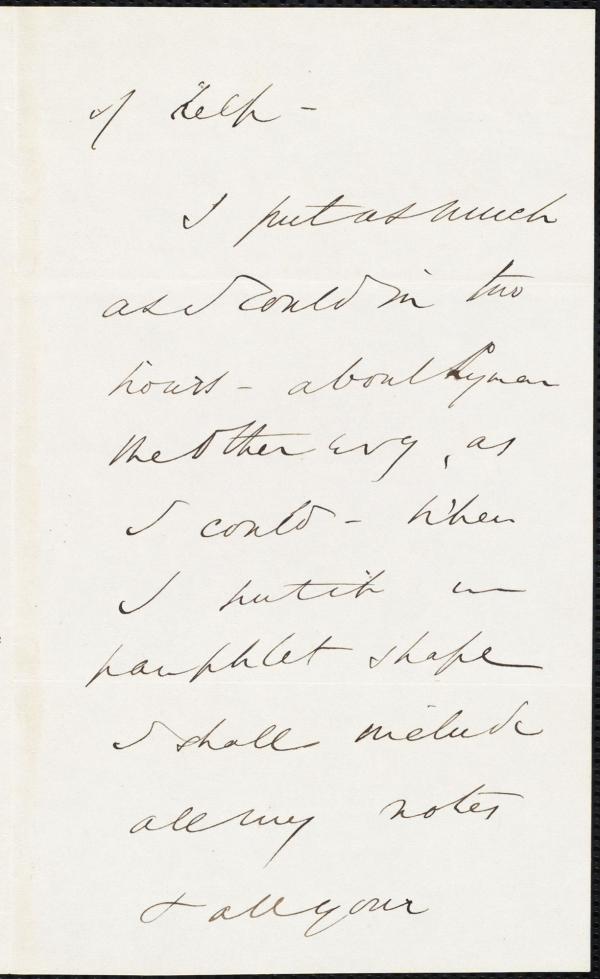 of help -
I put as much
as I could in two
hours - about Lyman
the other evg, as
I could - When
I put it in
pamphlet shape
I shall include
all my notes
& all your